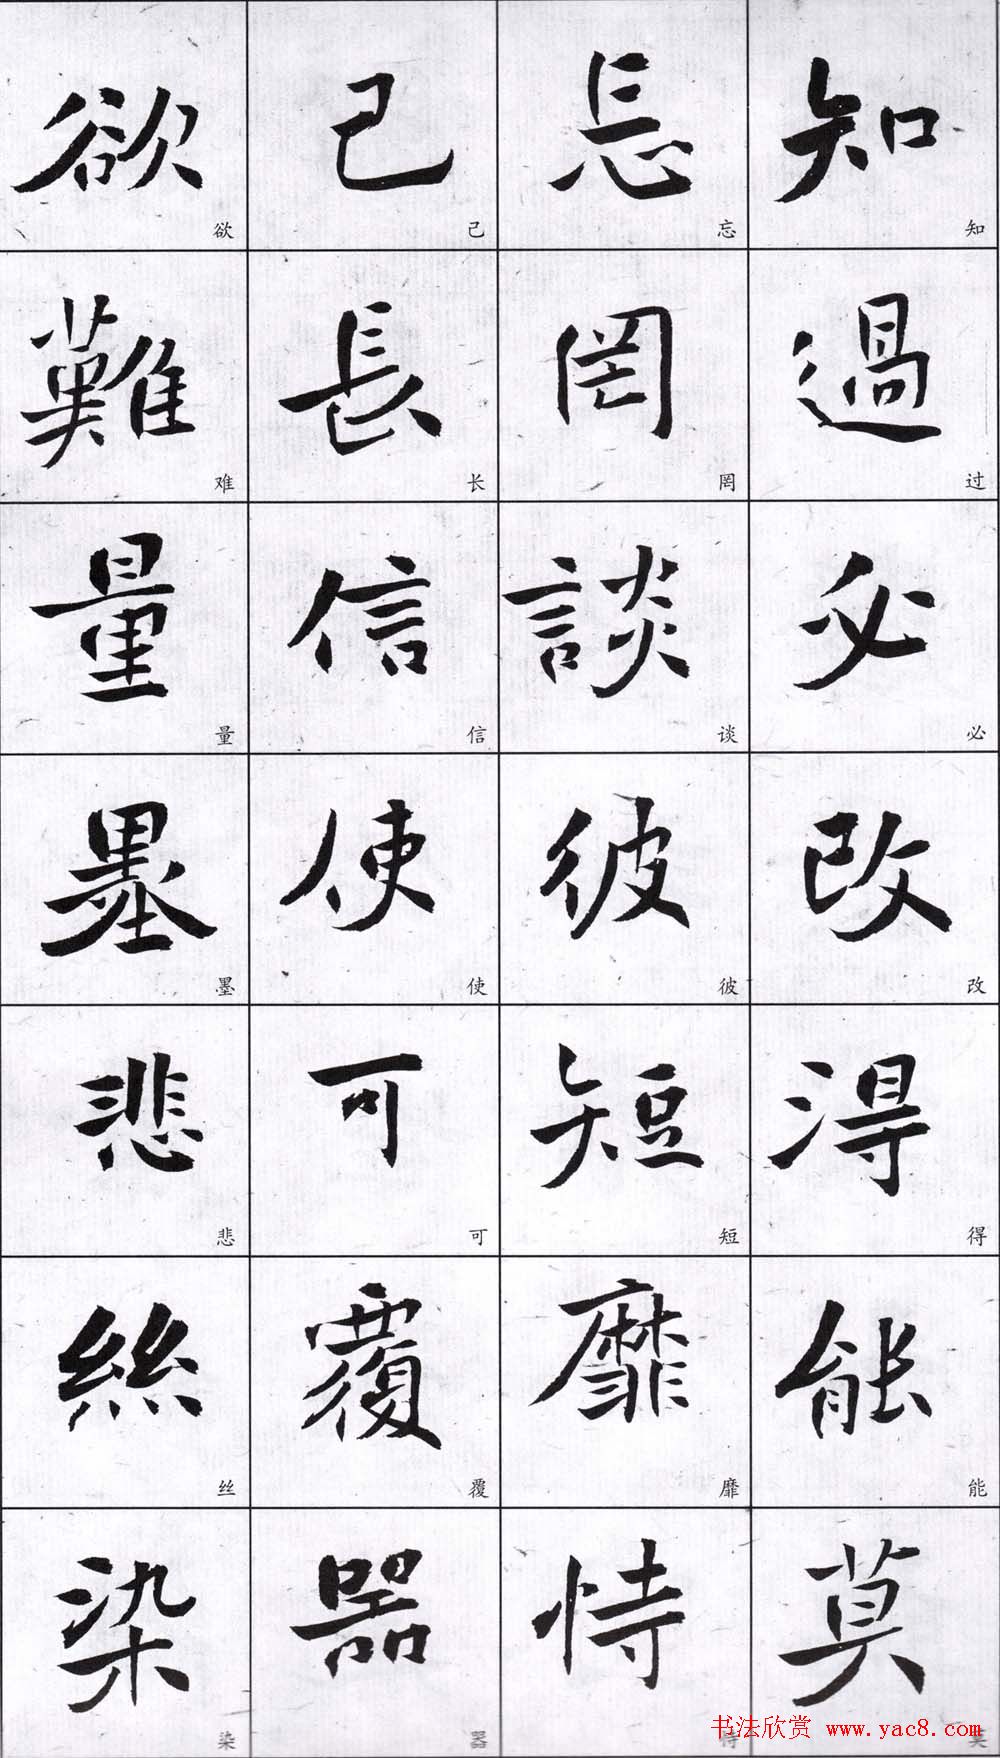 知過必改得能莫
知过必改得能莫
忘罔談彼短靡恃
忘罔谈彼短靡恃
己長信使可覆器
己长信使可覆器
欲難量墨悲絲染
欲难量墨悲丝染
书法欣赏 www.yac8.com